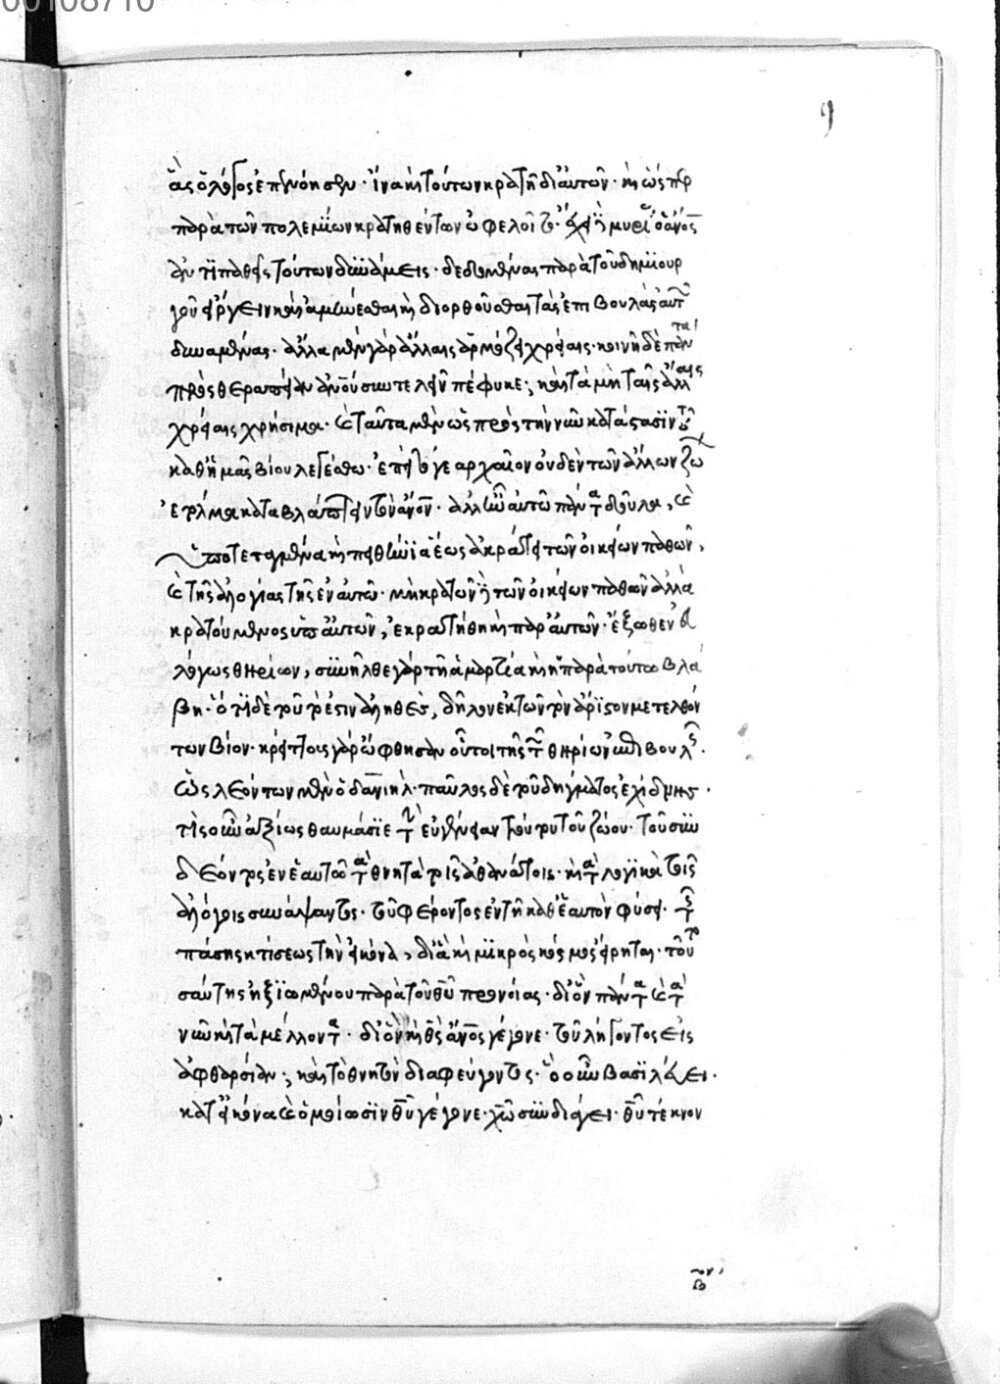 00108710
9
ἃς ὁ λόγος ἐπενόησεν · ἵνα καὶ τούτων κρατῆ δι' αὐτῶν · καὶ ὥσπερ
παρὰ τῶν πολεμίων κρατηθέντων ὠφελοῖτο · ἔχει ἢ μυρί ὁ ἄνος
ἀντιπαθεῖς τούτων δυνάμεις · δεδομένας παρὰ τοῦ δημιουρ
γοῦ εἴργειν καὶ ἀμύνεσθαι καὶ διορθοῦσθαι τὰς ἐπιβουλὰς αὐτῶν
δυναμένας · ἄλλα μὲν γὰρ ἄλλαις ἁρμόζει χρείαις · κοινῆ δὲ πάντα
πρὸς θεραπείαν ἀνοῦ συντελεῖν πέφυκε ; καὶ τὰ μὴ ταῖς ἄλλαις
χρείαις χρήσιμα · καὶ ταῦτα μὲν ὡς πρὸς τὴν νῦν κατάστασιν τοῦ
καθ' ἡμᾶς βίου λελέχθω · ἐπεὶ τό γε αρχαῖον οὐδὲν τῶν ἄλλων ζώ
ἐτόλμα καταβλάπτειν τὸν ἄνον · ἀλλ' ἦν αὐτῶ πάντα δοῦλα , καὶ
ὑποτεταγμένα καὶ πειθήνια ἕως ἐκράτει τῶν οἰκείων παθῶν ,
καὶ τῆς ἀλογίας τῆς ἐν αὐτῶ · μὴ κρατῶν ἢ τῶν οἰκείων παθῶν ἀλλὰ
κρατούμενος ὑπ' αὐτῶν , ἐκρατήθη καὶ παρ' αὐτῶν · ἔξωθεν
λόγως θηρίων , συνῆλθε γὰρ τῆ ἁμαρτία καὶ ἡ παρὰ τούτων βλά
βη · ὅτι δὲ τοῦτό ἐστιν ἀληθὲς , δῆλον ἐκ τῶν τὸν ἄριστον μετελθόν
των βίον · κρείττους γὰρ ὤφθησαν οὗτοι τῆς τῶν θηρίων ἐπιβουλῆς ·
ὡς λεόντων μὲν ὁ δανιὴλ · παῦλος δὲ τοῦ δήγματος ἐχίδνης ·
τίς οὖν ἀξίως θαυμάσειε τὴν εὐγένειαν τούτου τοῦ ζώου · τοῦ συν
δέοντος ἐν ἑαυτῶ τὰ θνητὰ τοῖς ἀθανάτοις · καὶ τὰ λογικὰ τοῖς
ἀλόγοις συνάψαντος · τοῦ φέροντος ἐν τῆ καθ' ἑαυτὸν φύσει · τῆς
πάσης κτίσεως τὴν εἰκόνα , δι' ἃ καὶ μικρὸς κόσμος εἴρηται · τοῦ το
σαύτης ἠξιωμένου παρὰ τοῦ θῦ προνοίας · δι' ὃν πάντα καὶ τὰ
νῦν καὶ τὰ μέλλοντα · δι' ὃν καὶ θς ἄνος γέγονε · τοῦ λήγοντος εἰς
ἀφθαρσίαν · καὶ τὸ θνητὸν διαφεύγοντος · ὃ οὐνων βασιλεύει ·
κατ' εἰκόνα καὶ ὁμοίωσιν θῦ γέγονε · χῶ συνδιάγει · θῦ τέκνον